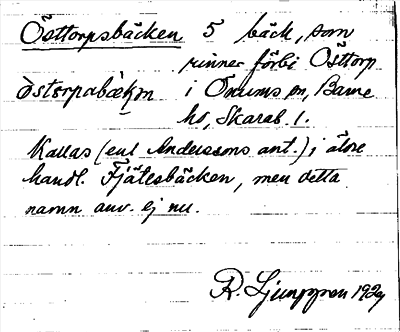 Östtorpsbäcken 5 bäck, som
rinner förbi Östtorp
i Önums sn, Barne
hd, Skarab. l.
Kallas (enl Anderssons ant.) i äldre
handl. Fjätesbäcken, men detta
namn anv. ej nu.
R. Ljunggren 1929